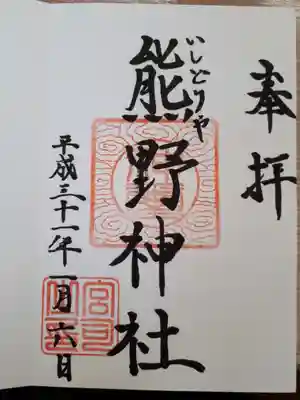 奉拝
いしどりや
熊野神社
平成三十一年一月六日